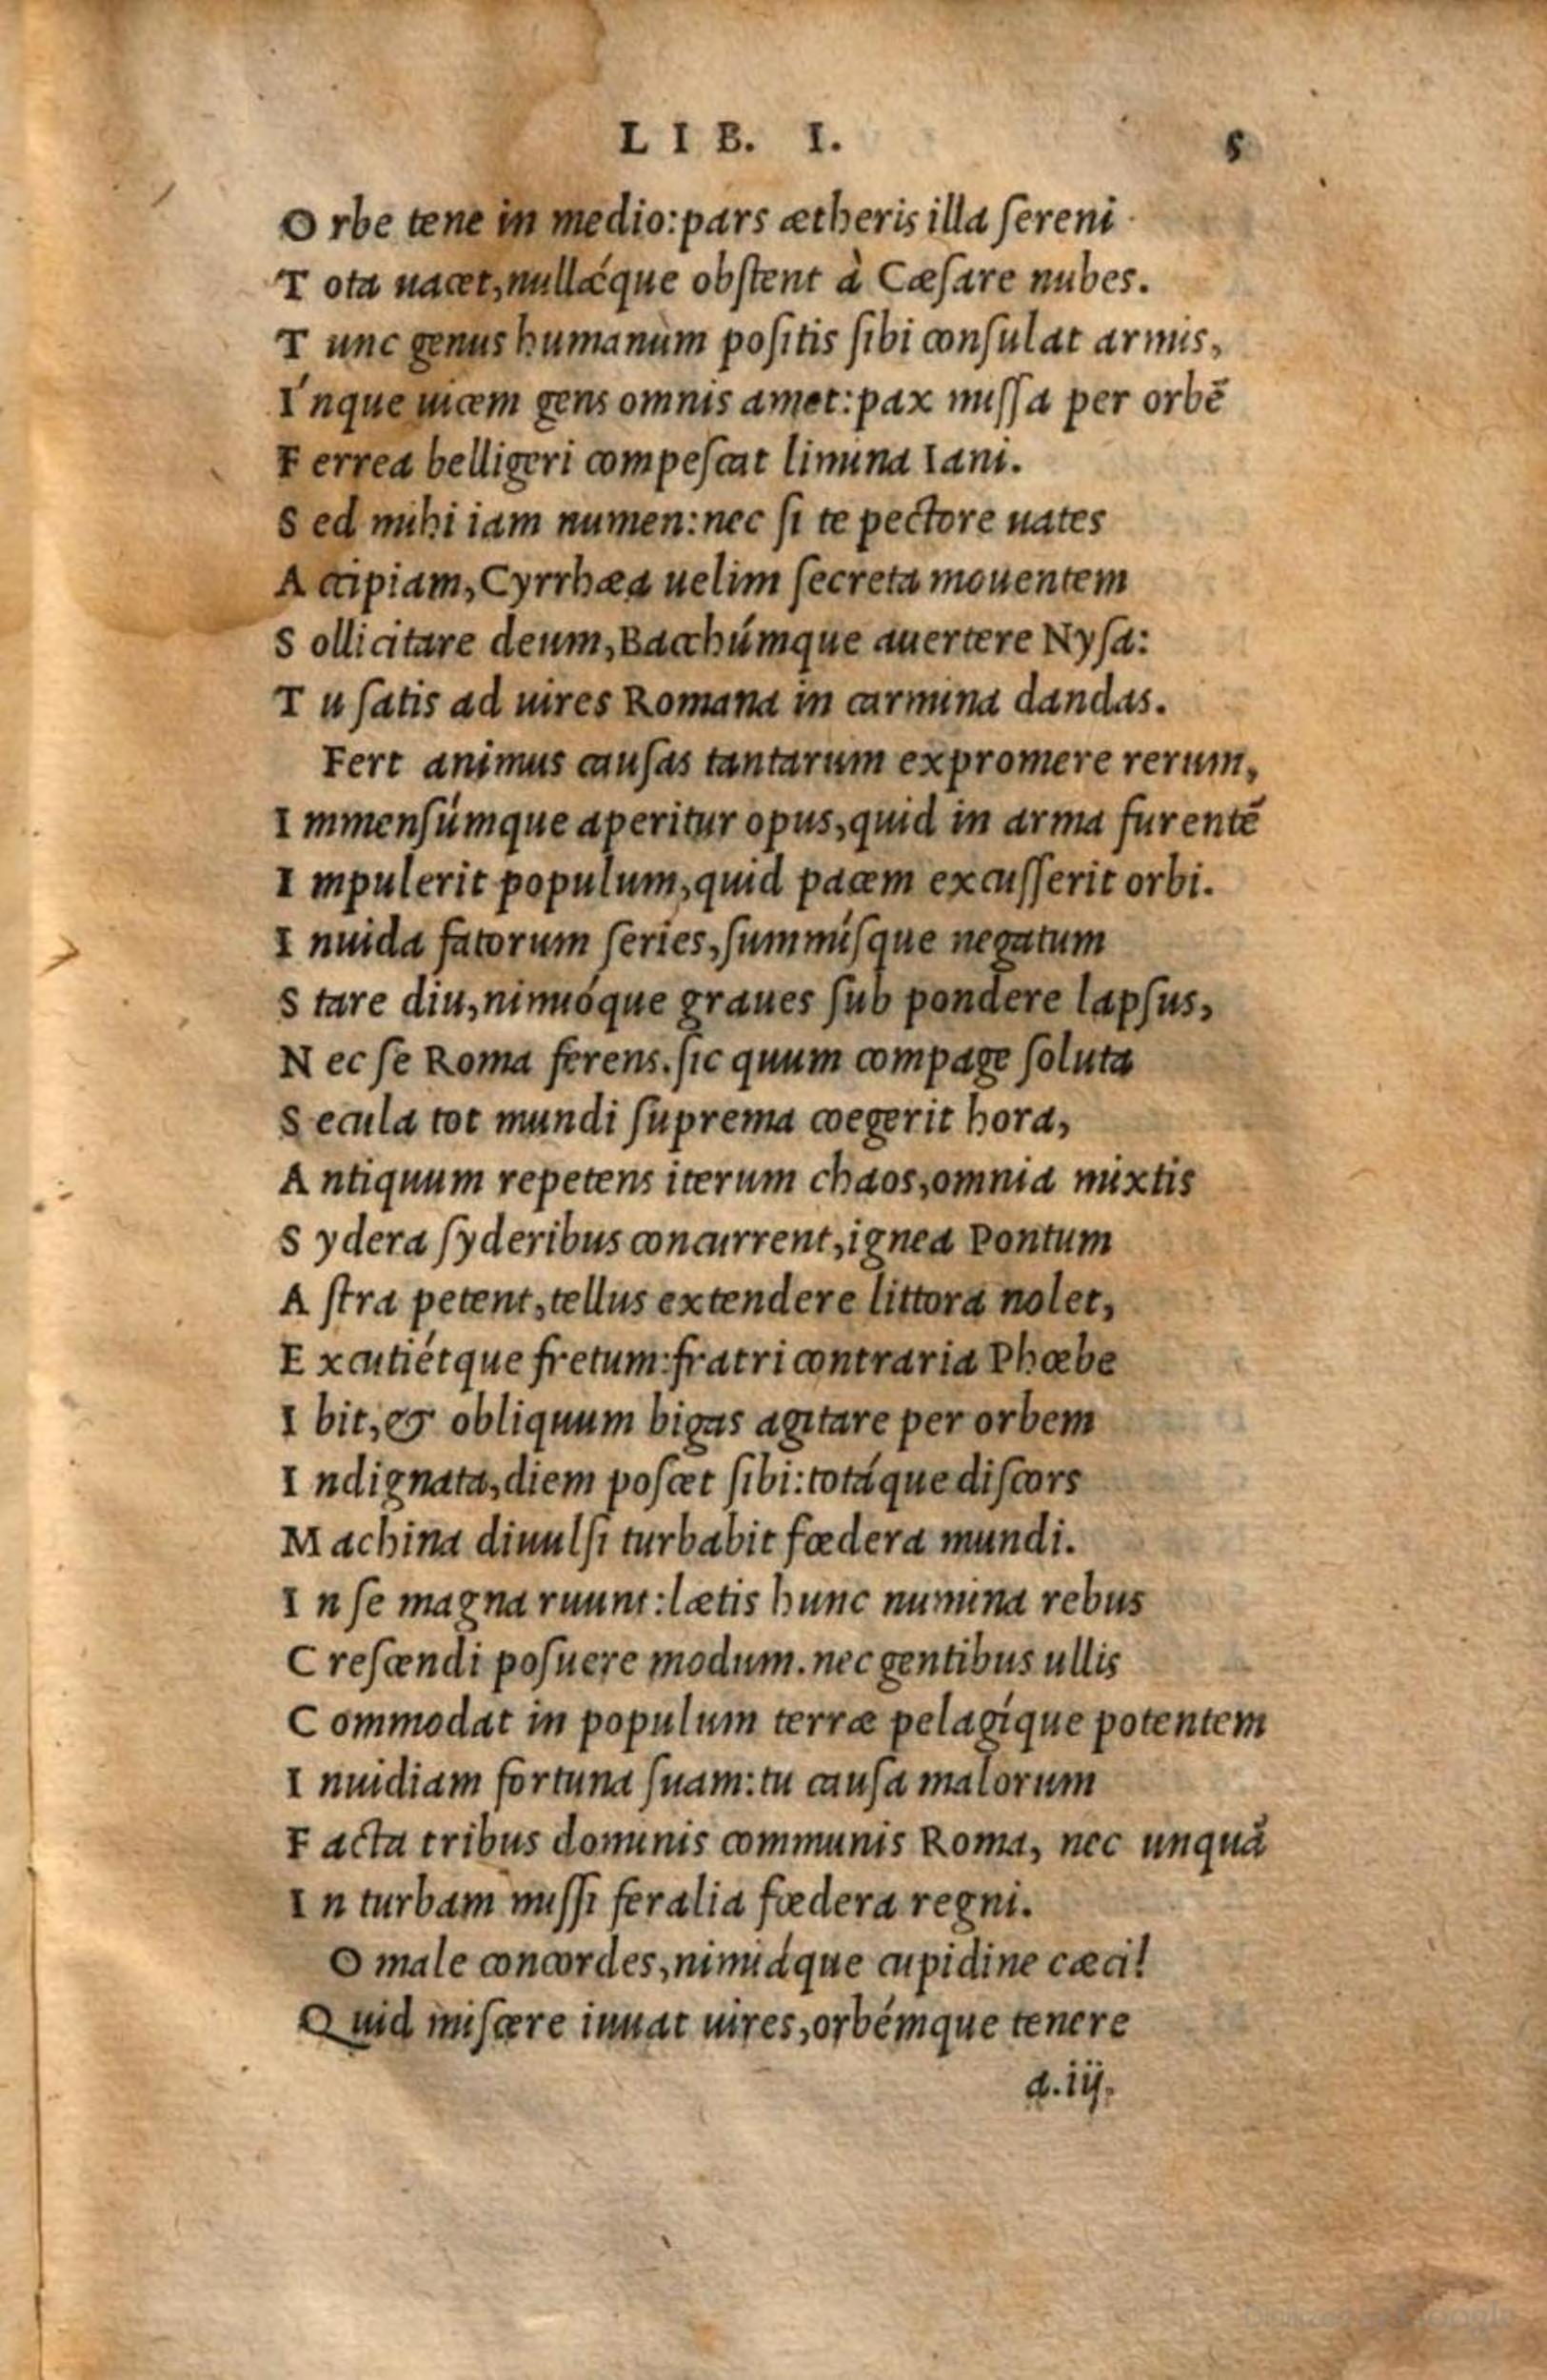 LIB. I. 5
O rbe tene in medio:pars ætheris illa ſereni
T ota uacet,nullǽque obſtent à Cæſare nubes.
T unc genus humanum poſitis ſibi conſulat armis,
I ́nque uicem gens omnis amet:pax miſſa per orbē
F errea belligeri compeſcat limina Iani.
S ed mihi iam numen:nec ſi te pectore uates
A ccipiam,Cyrrhæa uelim ſecreta mouentem
S ollicitare deum,Bacchúmque auertere Nyſa:
T u ſatis ad uires Romana in carmina dandas.
Fert animus cauſas tantarum expromere rerum,
I mmenſúmque aperitur opus,quid in arma furentē
I mpulerit populum,quid pacem excuſſerit orbi.
I nuida fatorum ſeries,ſummíſque negatum
S tare diu,nimióque graues ſub pondere lapſus,
N ec ſe Roma ferens.ſic quum compage ſoluta
S ecula tot mundi ſuprema coegerit hora,
A ntiquum repetens iterum chaos,omnia mixtis
S ydera ſyderibus concurrent,ignea Pontum
A ſtra petent,tellus extendere littora nolet,
E xcutiétque fretum:fratri contraria Phœbe
I bit,& obliquum bigas agitare per orbem
I ndignata,diem poſcet ſibi:totáque diſcors
M achina diuulſi turbabit fœdera mundi.
I n ſe magna ruunt:lætis hunc numina rebus
C reſcendi poſuere modum.nec gentibus ullis
C ommodat in populum terræ pelagíque potentem
I nuidiam fortuna ſuam:tu cauſa malorum
F acta tribus dominis communis Roma, nec unquā
I n turbam miſſi feralia fœdera regni.
O male concordes,nimiáque cupidine cæci!
Quid miſcere iuuat uires,orbémque tenere
a.iij.
Digitized by Google